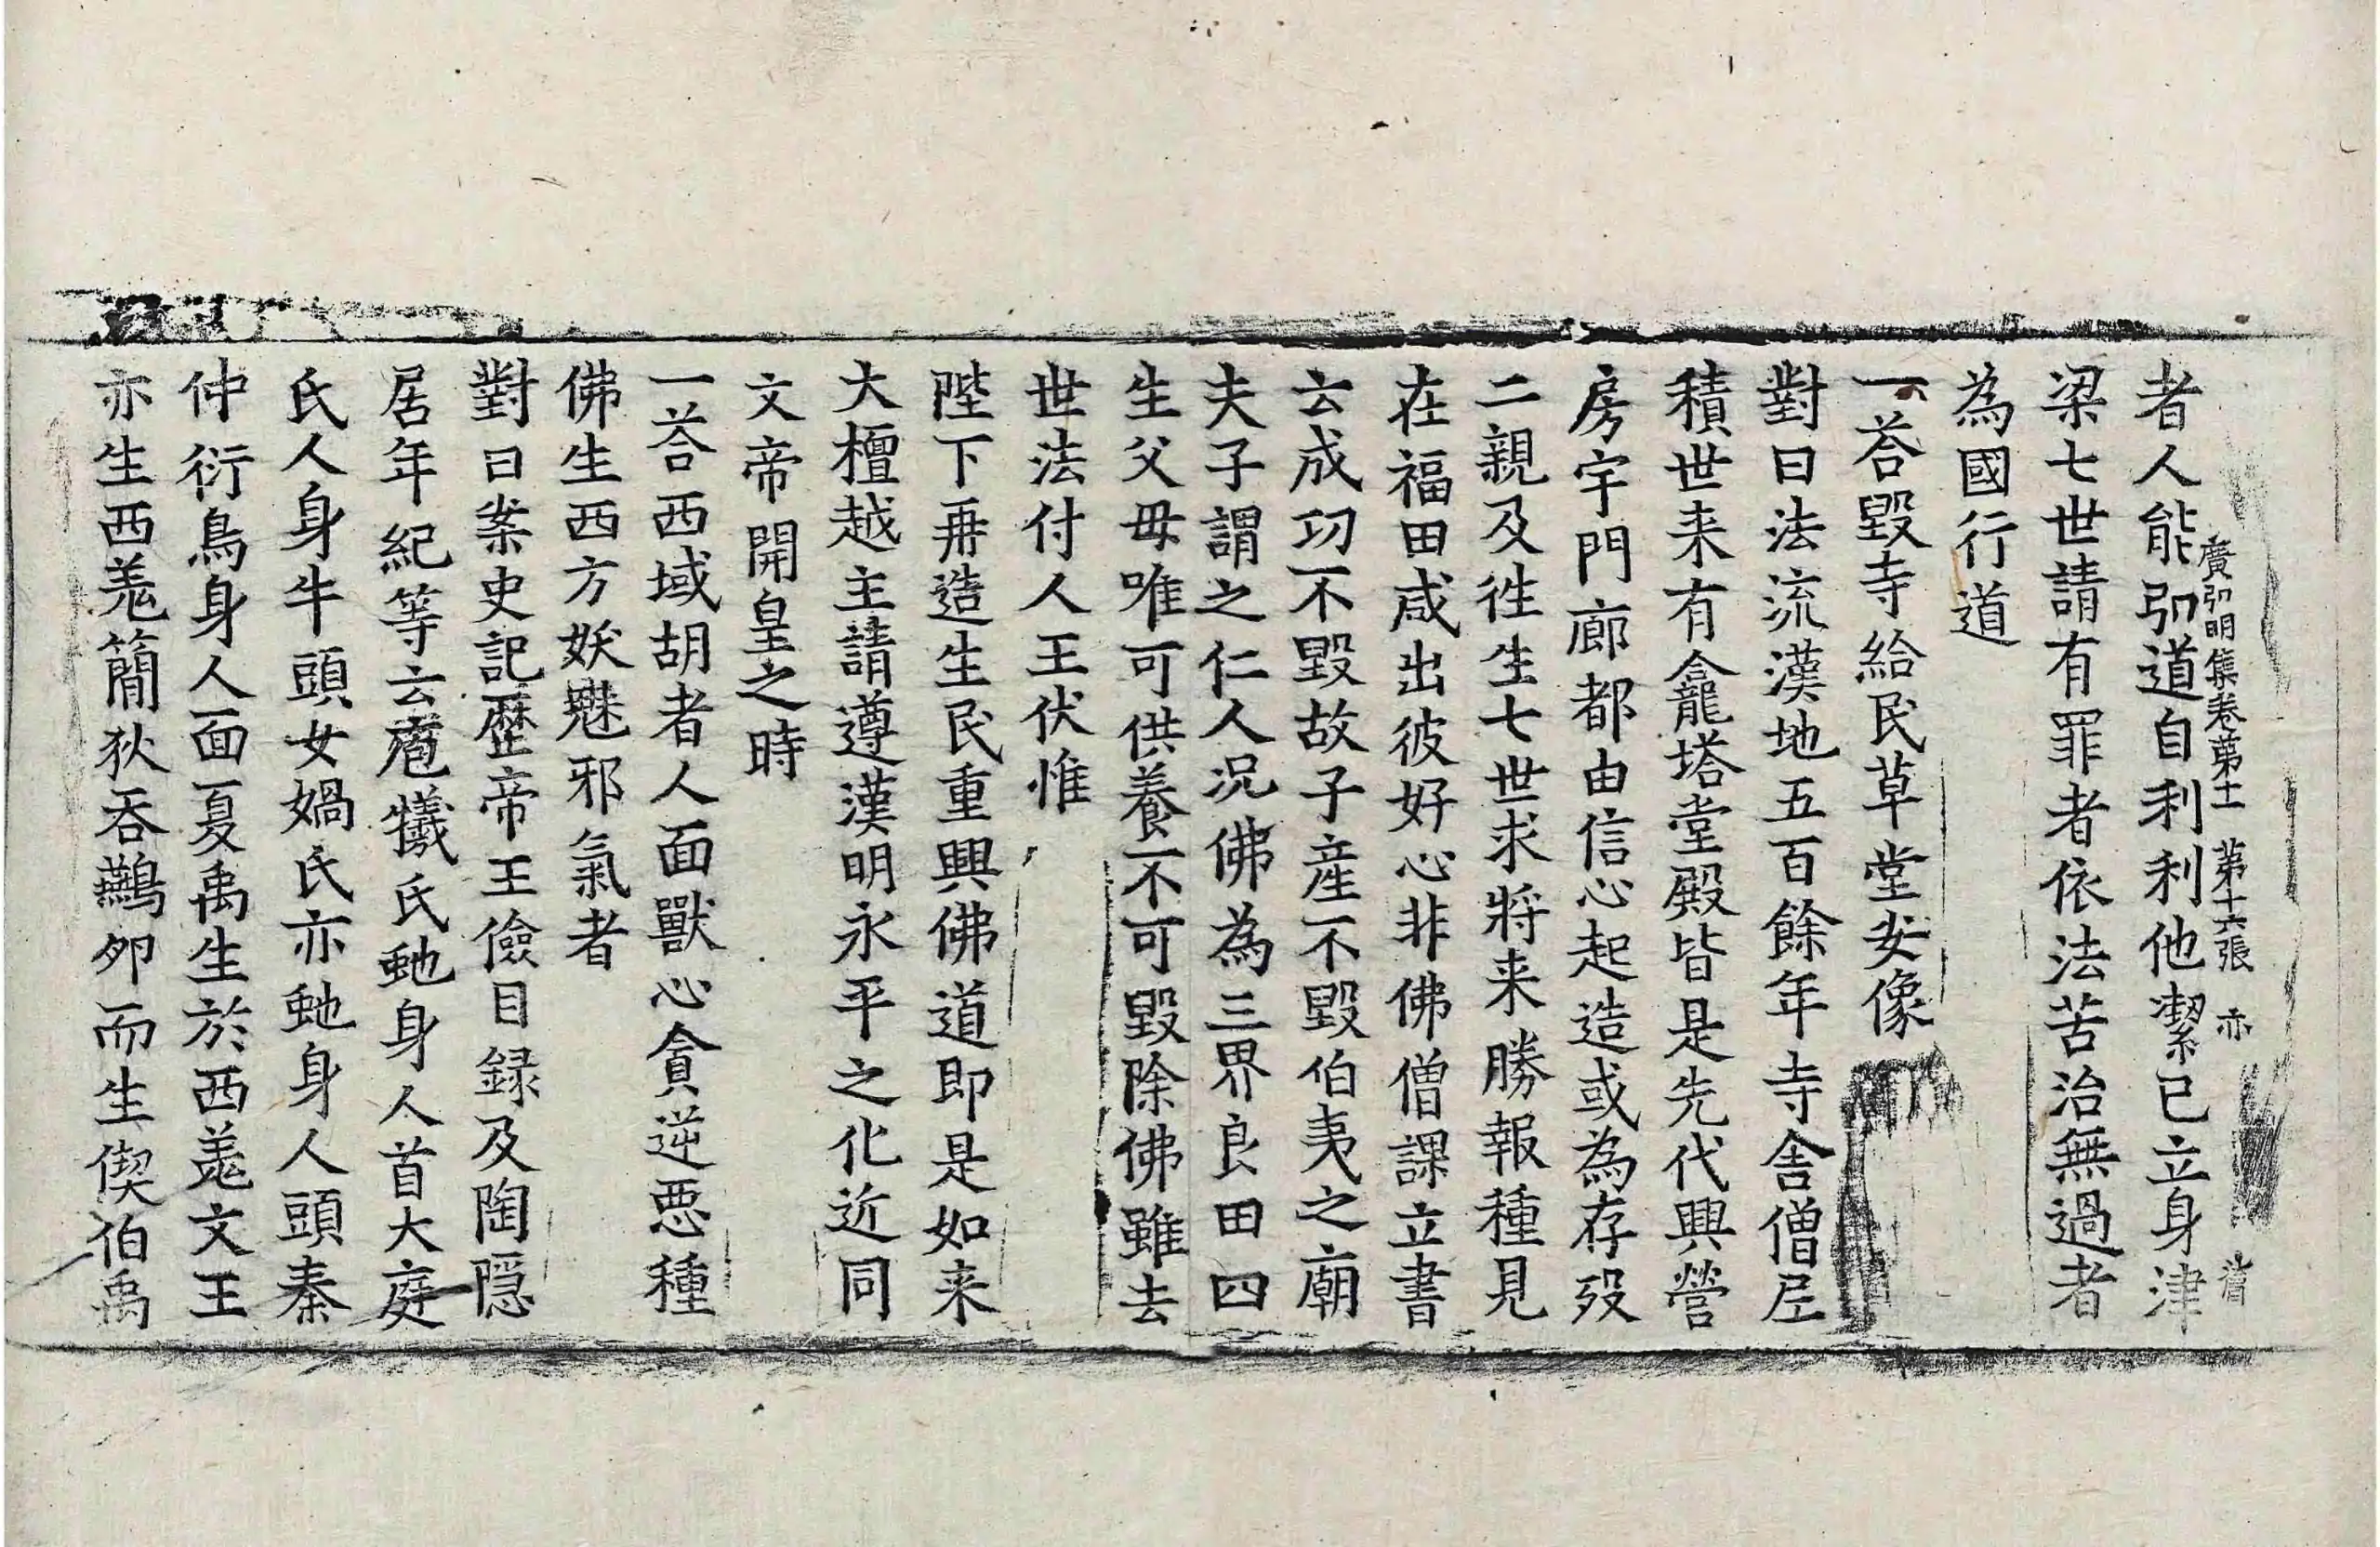 者人能弘道自利利他潔己立身津
廣弘明集卷第十一 第十六張 亦
梁七世請有罪者依法苦治無過者
為國行道
一荅毀寺給民草堂安像
對曰法流漢地五百餘年寺舍僧尼
積世来有龕塔堂殿皆是先代興營
房宇門廊都由信心起造或為存歿
二親及徃生七世求將来勝報種見
在福田咸出彼好心非佛僧課立書
云成功不毀故子產不毀伯夷之廟
夫子謂之仁人况佛為三界良田四
生父毋唯可供養不可毀除佛雖去
世法付人王伏惟
陛下再造生民重興佛道即是如来
大檀越主請遵漢明永平之化近同
文帝開皇之時
一荅西域胡者人面獸心貪逆惡種
佛生西方妖魅邪氣者
對曰案史記歷帝王儉目録及陶隠
居年紀等云庖犧氏虵身人首大庭
氏人身牛頭女媧氏亦虵身人頭秦
仲衍鳥身人面夏禹生於西羌文王
亦生西羌簡狄吞鷰夘而生偰伯禹